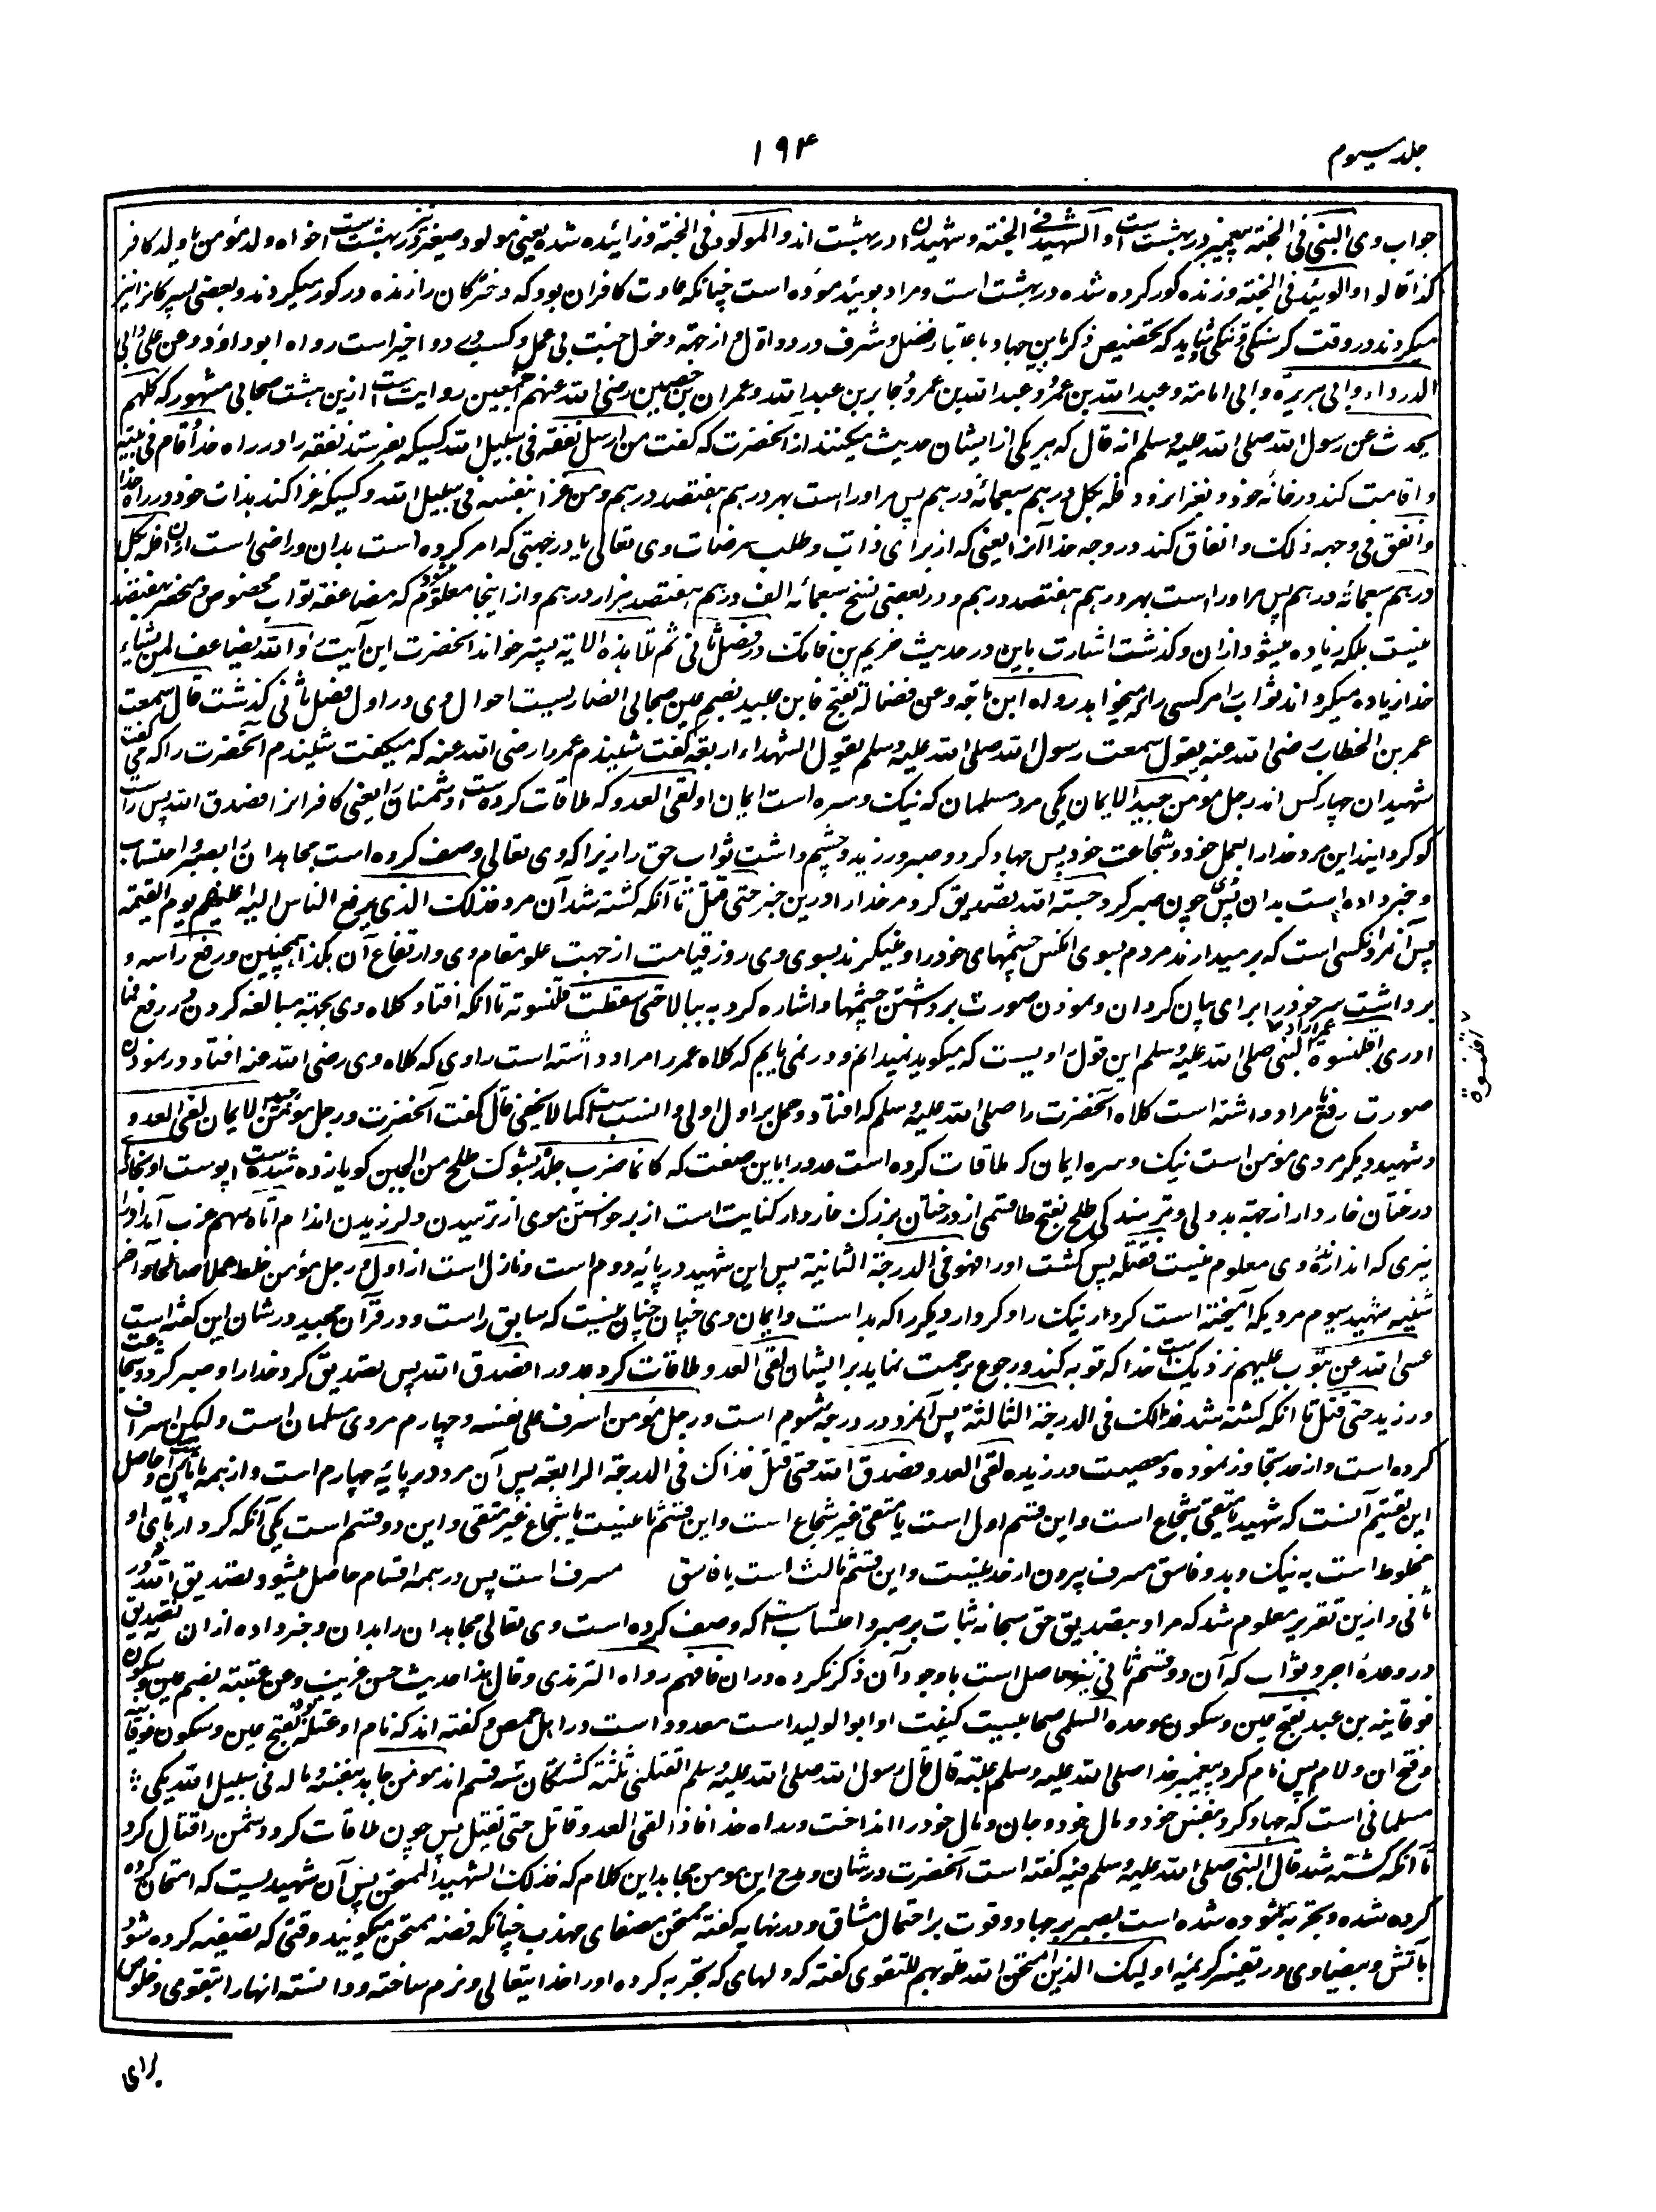 جلد سیوم
۱۹۴
جواب وی النبی فی الجنة پیغمبر در بهشت است و الشهید فی الجنة و شهید او در بهشت اند و المولود فی الجنة و زائیده شده یعنی مولود صغیر نیز در بهشت است خواه ولد مؤمن یا ولد کافر
کذا قالوا و الوئید فی الجنة و زنده کور کرده شده در بهشت است و مراد بوئید موءده است چنانکه عادت کافران بود که دخترکان را زنده در کور میکردند و بعضی پسرکانرا نیز
میکردند در وقت کرسنکی و تنکی شاید که تخصیص ذکر باین چهار باعتبار فضل و شرف در دو اول و از جهة دخول جنت بی عمل و کسب در دو اخیر است رواه ابو داؤد و عن علی و ابی
الدرداء و ابی هریرة و ابی امامة و عبد الله بن عمر و عبد الله بن عمرو و جابر بن عبد الله و عمران بن حصین رضی الله عنهم اجمعین روایت است ازین هشت صحابی مشهور که کلهم
یحدث عن رسول الله صلی الله علیه وسلم انه قال که هر یکی از ایشان حدیث میکنند از آنحضرت که گفت من ارسل نفقة فی سبیل الله کسیکه بفرستد نفقه را در راه خدا و اقام فی بیته
و اقامت کند در خانه خود و بغزا نرود فله بکل درهم سبعمائة درهم پس مر او را است بهر درهم هفتصد درهم و من غزا بنفسه فی سبیل الله و کسیکه غزا کند بذات خود در راه خدا
و انفق فی وجهه ذلک و انفاق کند در وجه غذا یعنی که از برای ذات و طلب مرضات وی تعالی یا در جهتی که امر کرده است بدان و راضی است ازان فله بکل
درهم سبعمائة درهم پس مر او را است بهر درهم هفتصد درهم و در بعضی نسخ سبعمائة الف درهم هفتصد هزار درهم و از اینجا معلوم شود که مضاعفه ثواب مخصوص و منحصر بهفتصد
نیست بلکه زیاده میشود ازان و کذشت اشارت باین در حدیث خریم بن فاتک در فصل ثانی ثم تلا هذه الآیة پستر خواند آنحضرت این آیت را و الله یضاعف لمن یشاء
خدا زیاده میکرداند ثواب را مر کسی را که میخواهد رواه ابن ماجه و عن فضالة بفتح فا بن عبید بضم عین صحابی انصاریست احوال وی در اول فصل ثانی کذشت قال سمعت
عمر بن الخطاب رضی الله عنه یقول سمعت رسول الله صلی الله علیه وسلم یقول الشهداء اربعة گفت شنیدم عمر را رضی الله عنه که میگفت شنیدم آنحضرت را که می گفت
شهیدان چهار کس اند رجل مؤمن جید الایمان یکی مرد مسلمان که نیک و سره است ایمان او لقی العدو که ملاقات کرده است دشمنان را یعنی کافرانرا فصدق الله پس راست
کو کردانید این مرد خدا را بعمل خود و شجاعت خود پس جهاد کرد و صبر ورزید و چشم داشت ثواب حق را زیرا که وی تعالی وصف کرده است مجاهدان را بصبر و احتساب
و خبر داده است بدان پس وی چون صبر کرد حسبة لله تصدیق کرد مر خدا را درین خبر حتی قتل تا آنکه کشته شد آن مرد فذلک الذی یرفع الناس الیه اعینهم یوم القیمة
پس آنمرد آنکسی است که برمیدارند مردم بسوی آنکس چشمهای خود را و مینکرند بسوی وی روز قیامت از جهت علو مقام وی و ارتفاع آن هکذا همچنین و رفع راسه و
برداشت سر خود را برای بیان کردن و نمودن صورت برداشتن چشمها و اشاره کرد به ببالا حتی سقطت قلنسوته تا آنکه افتاد کلاه وی بجهة مبالغه کردن در رفع فما
ادری اقلنسوة عمر اراد ام النبی صلی الله علیه وسلم این قول راویست که میکوید نمیدانم و در نمی یابم که کلاه عمر را مراد داشته است راوی که کلاه وی رضی الله عنه افتاد در نمودن
صورت رفع یا مراد داشته است کلاه آنحضرت را صلی الله علیه وسلم که افتاد و حمل بر اول اولی و انسب است کما لا یخفی قال گفت آنحضرت و رجل مؤمن جید الایمان لقی العدو و
و شهید دیکر مردی مؤمن است نیک و سره ایمان که ملاقات کرده است عدو را باین صفت که کانما ضرب جلده بشوک طلح من الجبن کویا زده شده است پوست او بخارهای
درختان خاردار از جهة بددلی و ترسندکی طلح بفتح طا قسمی از درختان بزرک خاردار کنایت است از برخاستن موی از ترسیدن و لرزیدن اندام اتاه سهم غرب آمد او را
تیری که اندازنده وی معلوم نیست فقتله پس کشت او را فهو فی الدرجة الثانیة پس این شهید در پایه دوم است و نازل است از اول و رجل مؤمن خلط عملا صالحا و آخر
سیئا شهید سیوم مردیکه آمیخته است کردار نیک را و کردار دیکر را که بد است و ایمان وی چنان چنان نیست که سابق راست و در قرآن مجید در شان این گفته است
عسی الله ان یتوب علیهم نزدیک است خدا که توبه کند و رجوع برحمت نماید بر ایشان لقی العدو و ملاقات کرد عدو را فصدق الله پس تصدیق کرد خدا را و صبر کرد و شجاعت
ورزید حتی قتل تا آنکه کشته شد فذلک فی الدرجة الثالثة پس آنمرد در درجه سیوم است و رجل مؤمن اسرف علی نفسه و چهارم مردی مسلمان است و لیکن اسراف
کرده است و از حد تجاوز نموده و معصیت ورزیده لقی العدو فصدق الله حتی قتل فذاک فی الدرجة الرابعة پس آن مرد در پایه چهارم است و از همه پایان است و حاصل
این تقسیم آنست که شهید یا متقی شجاع است و این قسم اول است یا متقی غیر شجاع است و این قسم ثانیست یا شجاع غیر متقی و این دو قسم است یکی آنکه کردارهای او
مخلوط است به نیک و بد و فاسق مسرف بیرون از حد نیست و این قسم ثالث است یا فاسق مسرف است پس در همه اقسام حاصل میشود تصدیق الله در
ثانی و ازین تقریر معلوم شد که مراد بتصدیق حق سبحانه ثبات بر صبر و احتساب است که وصف کرده است وی تعالی مجاهدان را بدان و خبر داده ازان تصدیق
در وعده اجر و ثواب که آن در قسم ثانی نیز حاصل است با وجود آن ذکر نکرده دران فافهم رواه الترمذی و قال هذا حدیث حسن غریب و عن عتبة بضم عین و سکون
فوقانیه بن عبد بفتح عین و سکون موحده السلمی صحابیست کنیت او ابو الولید است معدود است در اهل حمص و گفته اند که نام او عتلة بود بفتح عین و سکون فوقانیه
و فتح ان و لام پس نام کرد پیغمبر خدا صلی الله علیه وسلم عتبة قال قال رسول الله صلی الله علیه وسلم القتلی ثلثة کشتکان سه قسم اند مؤمن جاهد بنفسه و ماله فی سبیل الله یکی
مسلمانی است که جهاد کرد بنفس خود و مال خود و جان و مال خود را انداخت در راه خدا فاذا لقی العدو قاتل حتی یقتل پس چون ملاقات کرد دشمن را قتال کرد
تا آنکه کشته شد قال النبی صلی الله علیه وسلم فیه گفته است آنحضرت در شان و مدح این مومن مجاهد این کلام که فذلک الشهید الممتحن پس آن شهیدیست که امتحان کرده
کرده شده و تجربه نموده شده است بصبر بر جهاد و قوت بر احتمال مشاق و در نهایه گفته ممتحن مصفای مهذب چنانکه فضه ممتحن میکویند وقتی که تصفیه کرده شود
بآتش و بیضاوی در تفسیر کریمه اولیک الذین امتحن الله قلوبهم للتقوی گفته که دلهای که تجربه کرده او را خدایتعالی و نرم ساخته و دانسته انها را بتقوی و خلوص
اقلنسوة
برای